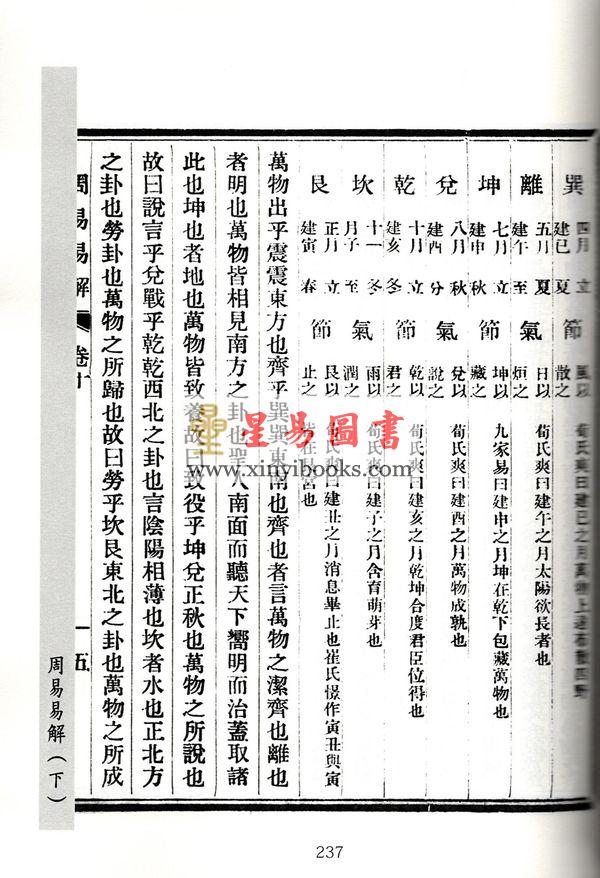 巽 四月建巳 立夏 節 風以散之 荀氏爽曰建巳之月萬物上達布散四野
離 五月建午 夏至 氣 日以烜之 荀氏爽曰建午之月太陽欲長者也
坤 七月建申 立秋 節 坤以藏之 九家易曰建申之月坤在乾下包藏萬物也
兌 八月建酉 秋分 氣 兌以說之 荀氏爽曰建酉之月萬物成孰也
乾 十月建亥 立冬 節 乾以君之 荀氏爽曰建亥之月乾坤合度君臣位得也
坎 十一月子 冬至 氣 雨以潤之 荀氏爽曰建子之月含育萌芽也
艮 正月建寅 立春 節 艮以止之 荀氏爽曰建丑之月消息畢止也崔氏憬作寅丑與寅
皆在艮宮也
萬物出乎震震東方也齊乎巽巽東南也齊也者言萬物之潔齊也離也
者明也萬物皆相見南方之卦也聖人南面而聽天下嚮明而治蓋取諸
此也坤也者地也萬物皆致養故曰致役乎坤兌正秋也萬物之所說也
故曰說言乎兌戰乎乾乾西北之卦也言陰陽相薄也坎者水也正北方
之卦也勞卦也萬物之所歸也故曰勞乎坎艮東北之卦也萬物之所成
周易易解 卷十 一五
周易易解（下）
237
星易圖書
www.xinyibooks.com